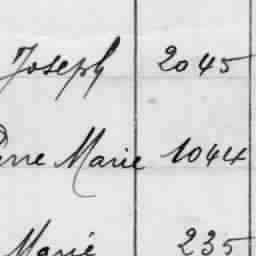 Joseph 2045
Marie 1044
Marie 235